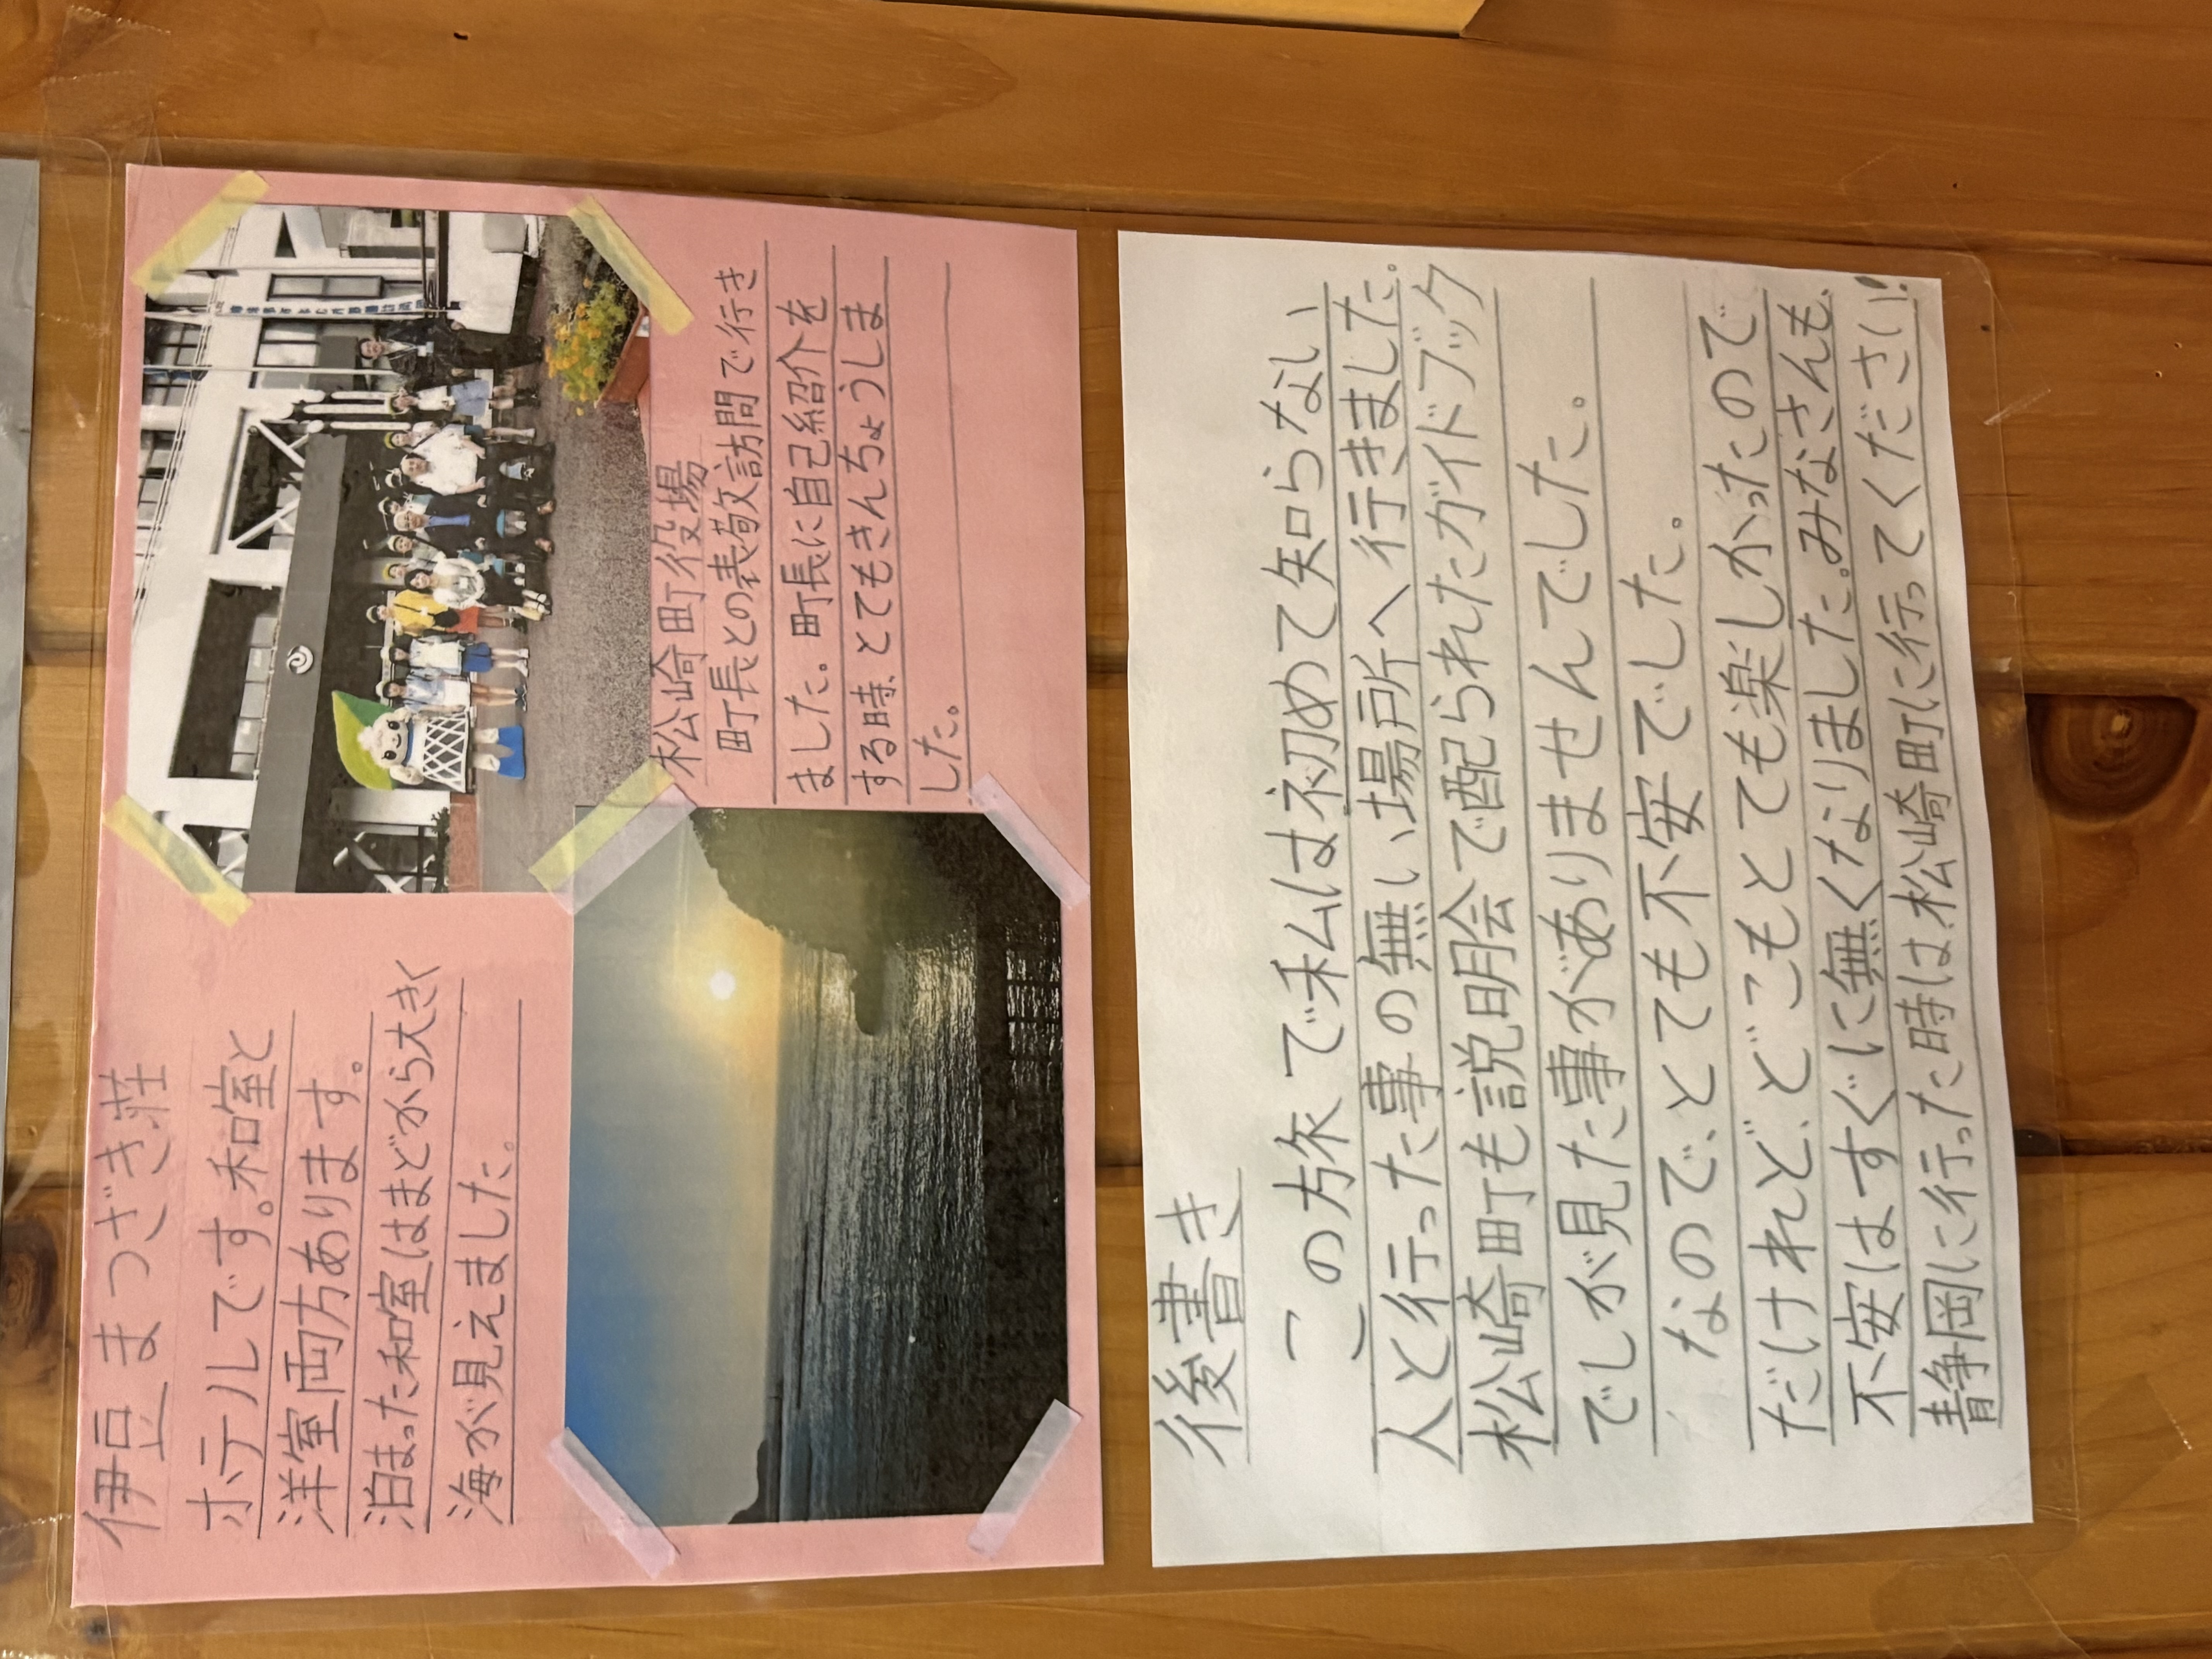 伊豆まつざき荘
ホテルです。和室と
洋室両方あります。
泊まった和室はまどから大きく
海が見えました。
松崎町役場
町長との表敬訪問で行き
ました。町長に自己紹介を
する時、とてもきんちょうしま
した。
後書き
この旅で私は初めて知らない
人と行った事の無い場所へ行きました。
松崎町も説明会で配られたガイドブック
でしか見た事がありませんでした。
なので、とても不安でした。
だけれど、どこもとても楽しかったので
不安はすぐに無くなりました。みなさんも、
静岡に行った時は、松崎町に行ってください!